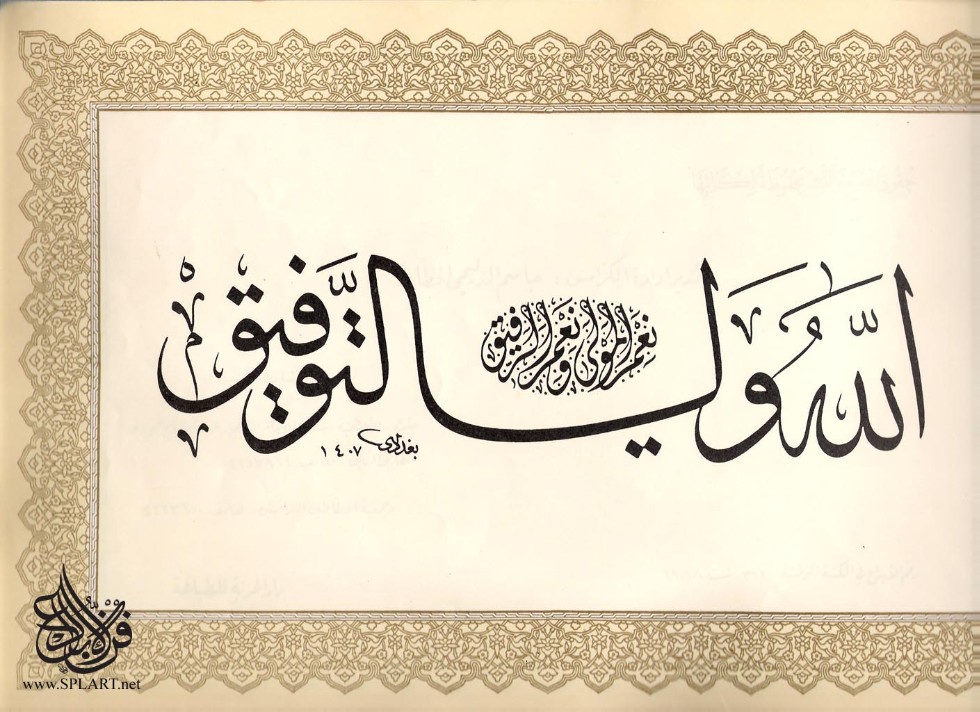 الله ولي التوفيق
نعم المولى ونعم الرفيق
بغدادي ١٤٠٧
فن الإبداع
www.SPLART.net